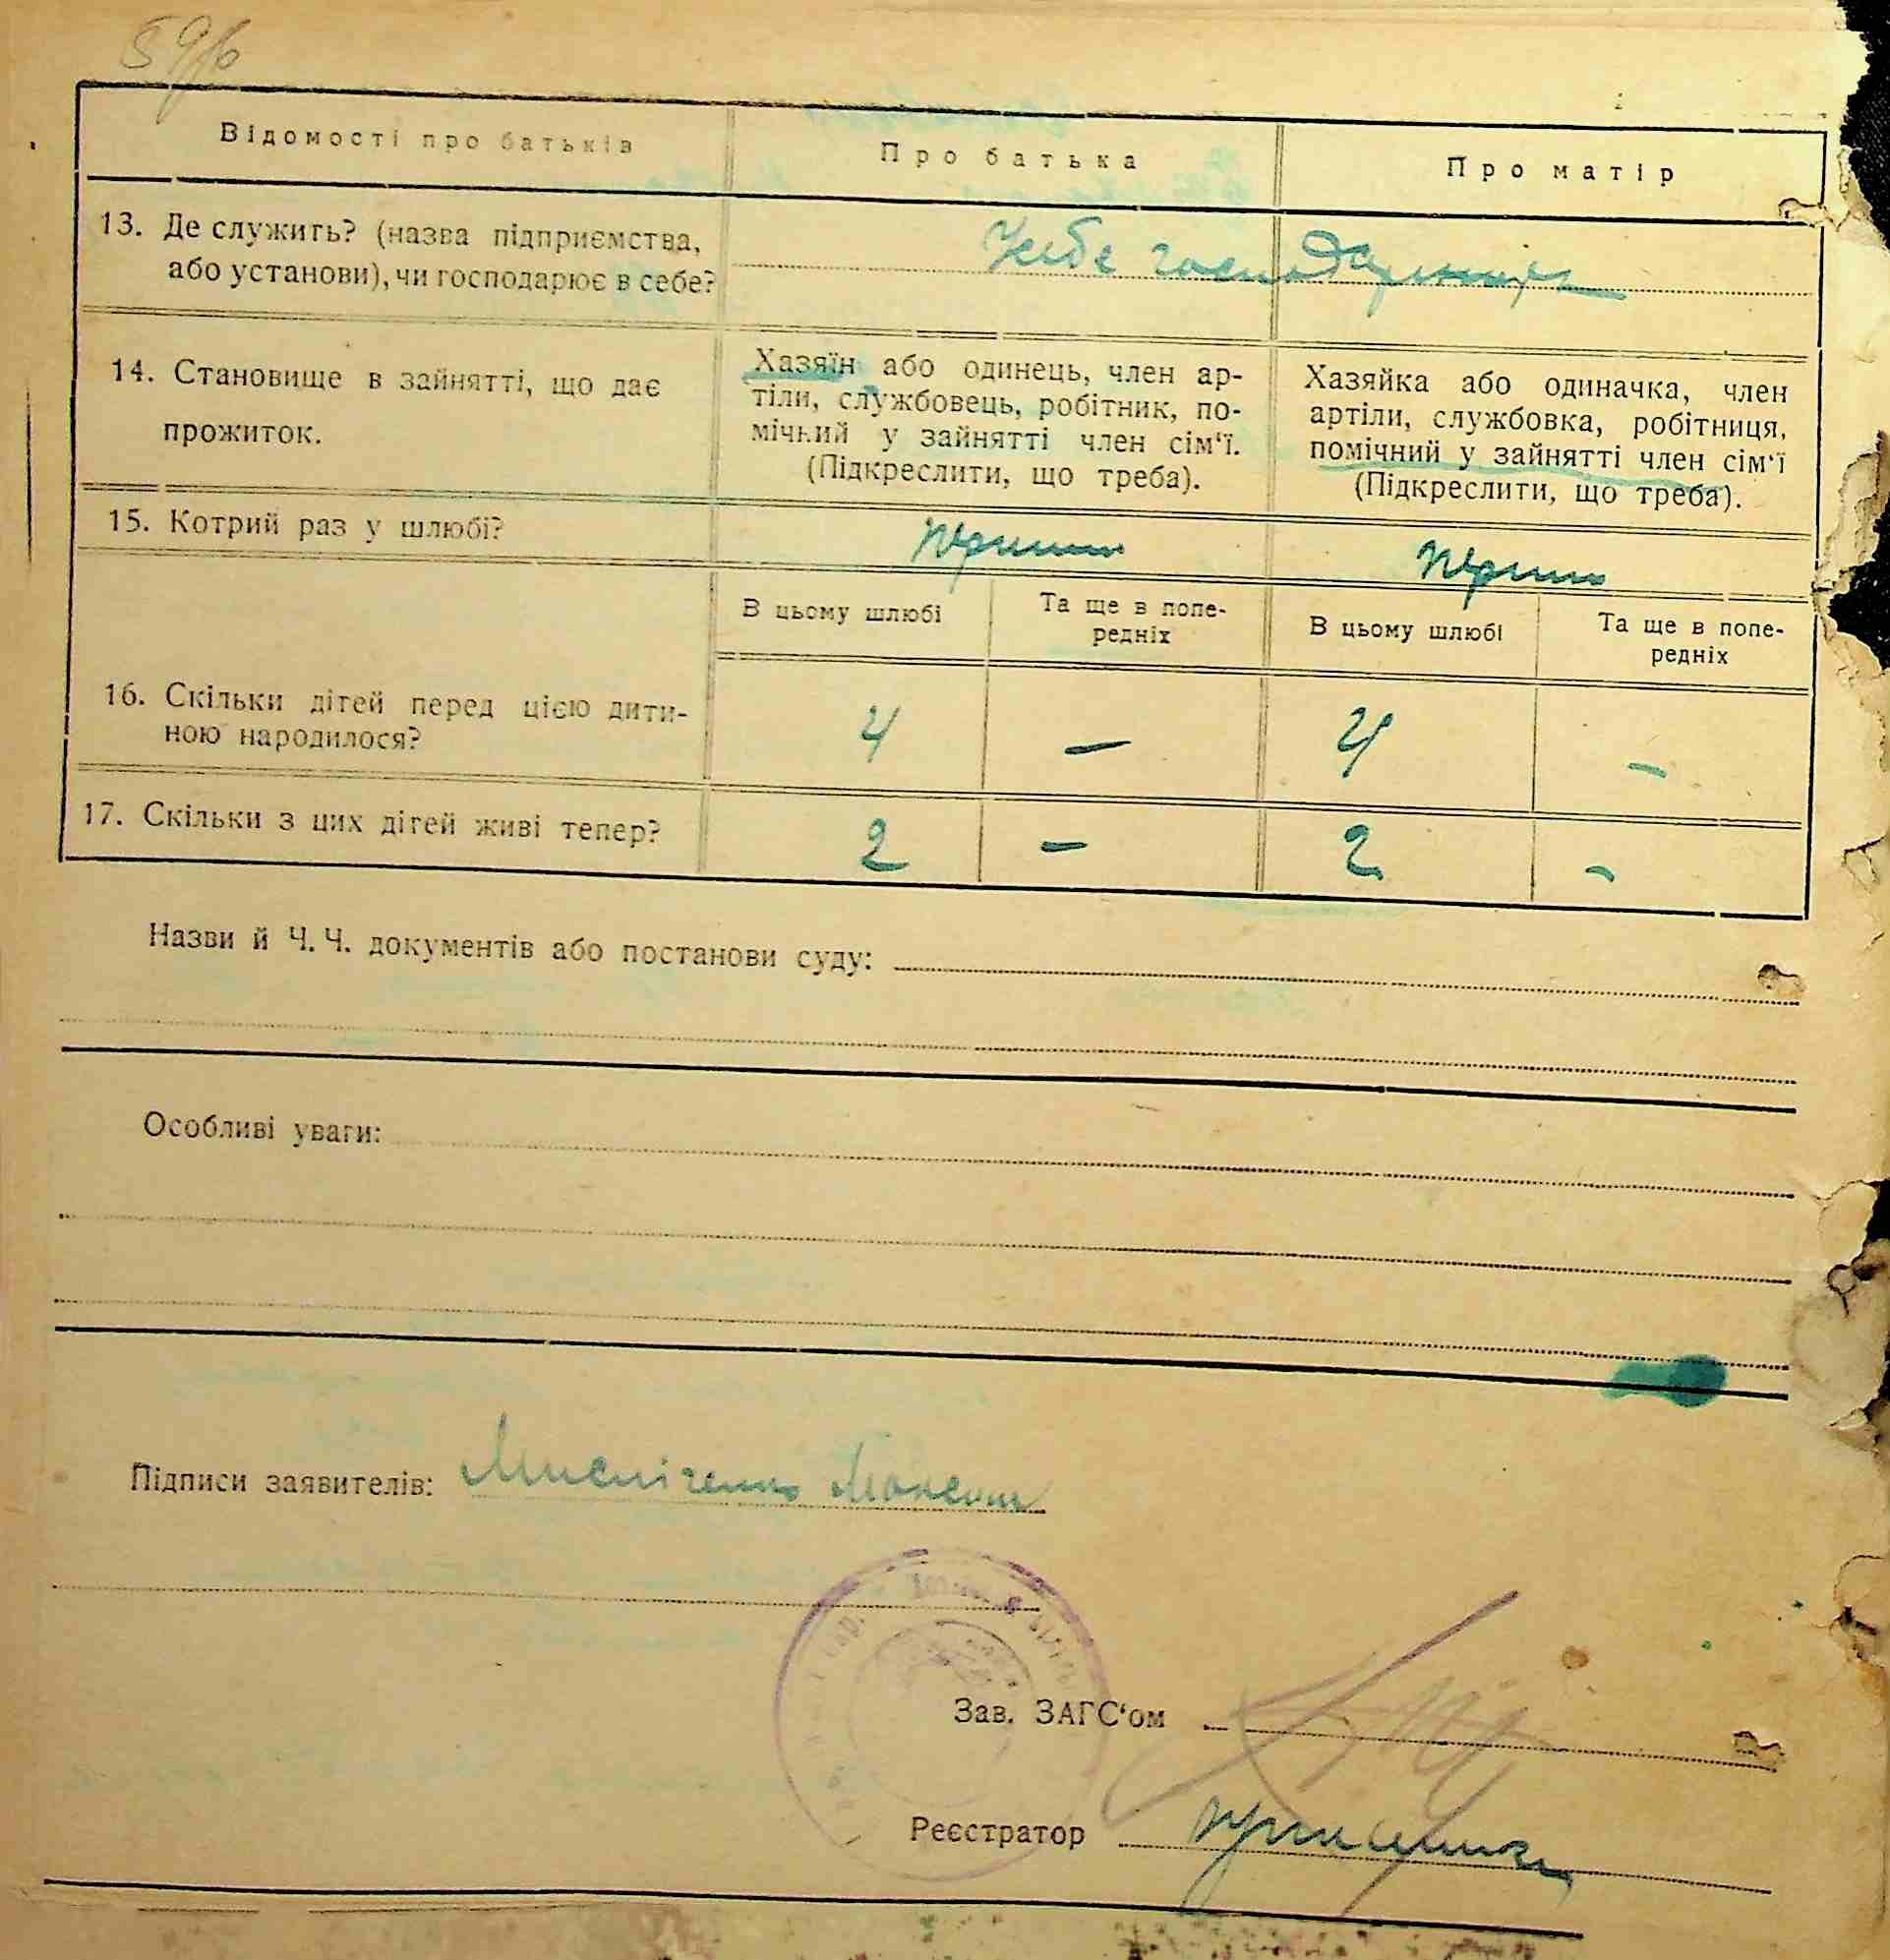 Відомості про батьків
Про батька
Про матір
13. Де служить? (назва підприємства,
або установи), чи господарює в себе?
У себе господарюють
14. Становище в зайнятті, що дає
прожиток.
Хазяїн або одинець, член ар-
тіли, службовець, робітник, по-
мічний у зайнятті член сім‘ї.
(Підкреслити, що треба).
Хазяйка або одиначка, член
артіли, службовка, робітниця,
помічний у зайнятті член сім‘ї
(Підкреслити, що треба).
15. Котрий раз у шлюбі?
В цьому шлюбі
Та ще в попе-
редніх
В цьому шлюбі
Та ще в попе-
редніх
16. Скільки дітей перед цією дити-
ною народилося?
4 — 4 —
17. Скільки з цих дітей живі тепер?
2 — 2 -
Назви й Ч. Ч. документів або постанови суду:
Особливі уваги:
Підписи заявителів:
Зав. ЗАГС‘ом
Реєстратор